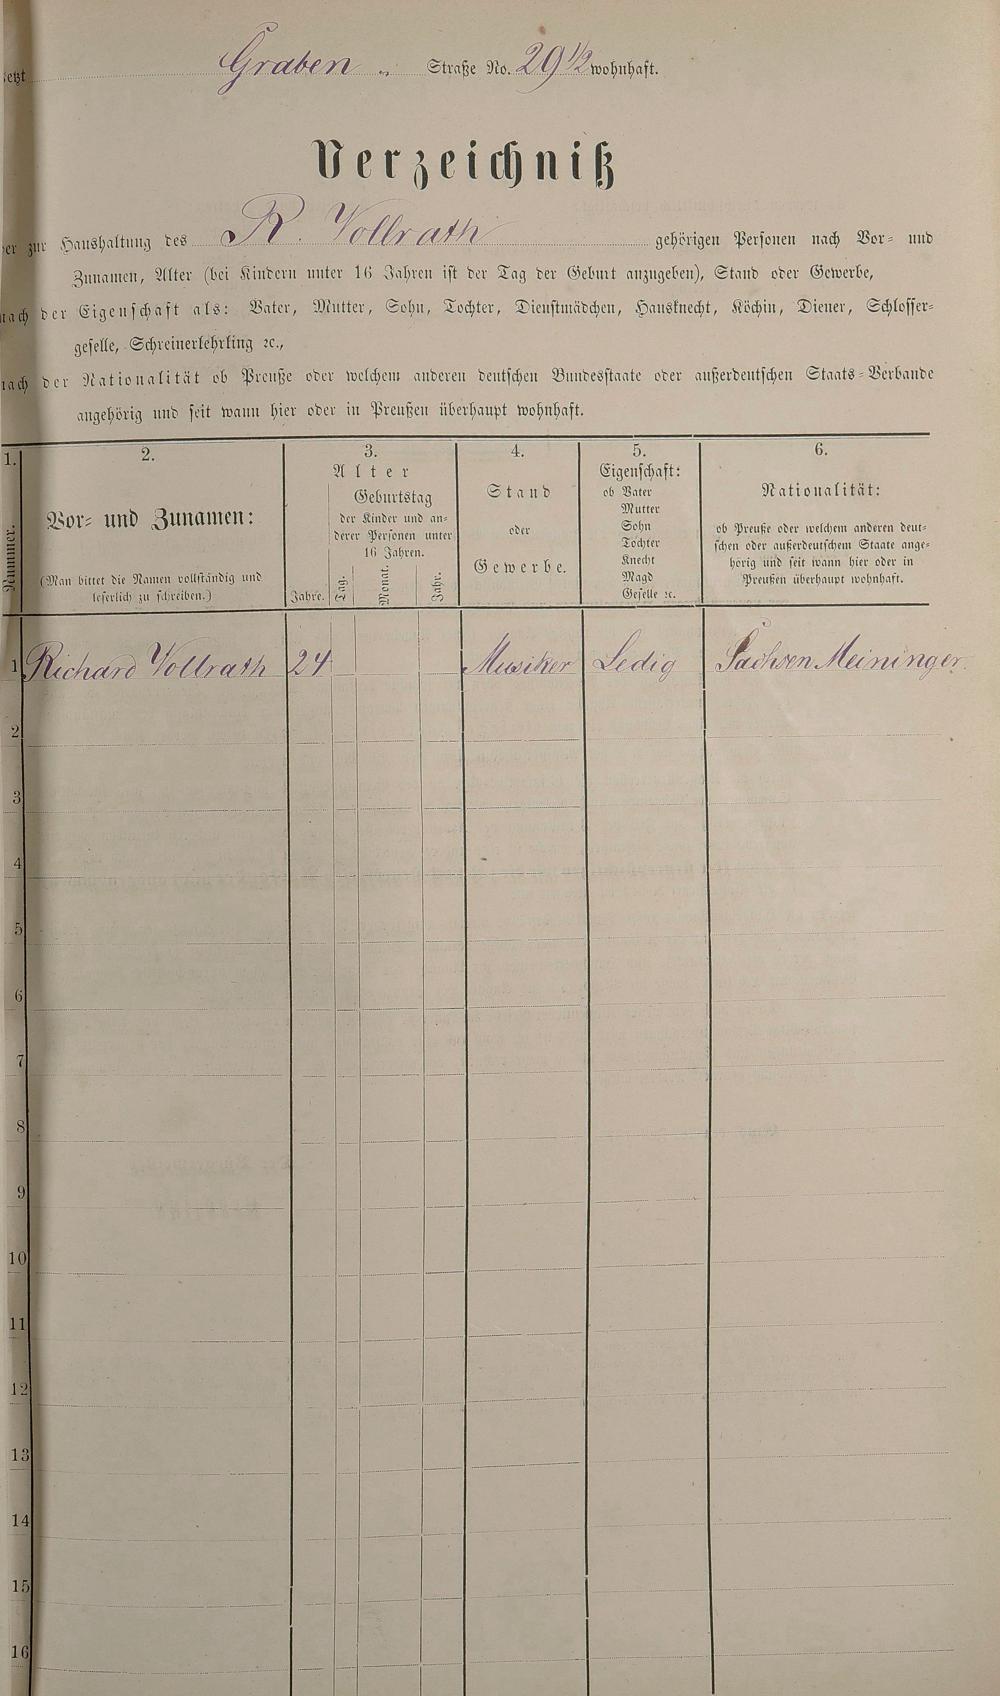 jetzt Graben „ Straße No. 29 1/2 wohnhaft.
Verzeichniß
der zur Haushaltung des R. Vollrath gehörigen Personen nach Vor- und
Zunamen, Alter (bei Kindern unter 16 Jahren ist der Tag der Geburt anzugeben), Stand oder Gewerbe,
nach der Eigenschaft als: Vater, Mutter, Sohn, Tochter, Dienstmädchen, Hausknecht, Köchin, Diener, Schlosser-
geselle, Schreinerlehrling ꝛc.,
nach der Nationalität ob Preuße oder welchem anderen deutschen Bundesstaate oder außerdeutschen Staats-Verbande
angehörig und seit wann hier oder in Preußen überhaupt wohnhaft.
1.
Nummer.
2.
Vor- und Zunamen:
(Man bittet die Namen vollständig und
leserlich zu schreiben.)
3.
Alter
Geburtstag
der Kinder und an-
derer Personen unter
16 Jahren.
Jahre.
Tag.
Monat.
Jahr.
4.
Stand
oder
Gewerbe.
5.
Eigenschaft:
ob Vater
Mutter
Sohn
Tochter
Knecht
Magd
Geselle ꝛc.
6.
Nationalität:
ob Preuße oder welchem anderen deut-
schen oder außerdeutschem Staate ange-
hörig und seit wann hier oder in
Preußen überhaupt wohnhaft.
1 Richard Vollrath 24 Musiker Ledig Sachsen Meininger.
2
3
4
5
6
7
8
9
10
11
12
13
14
15
16